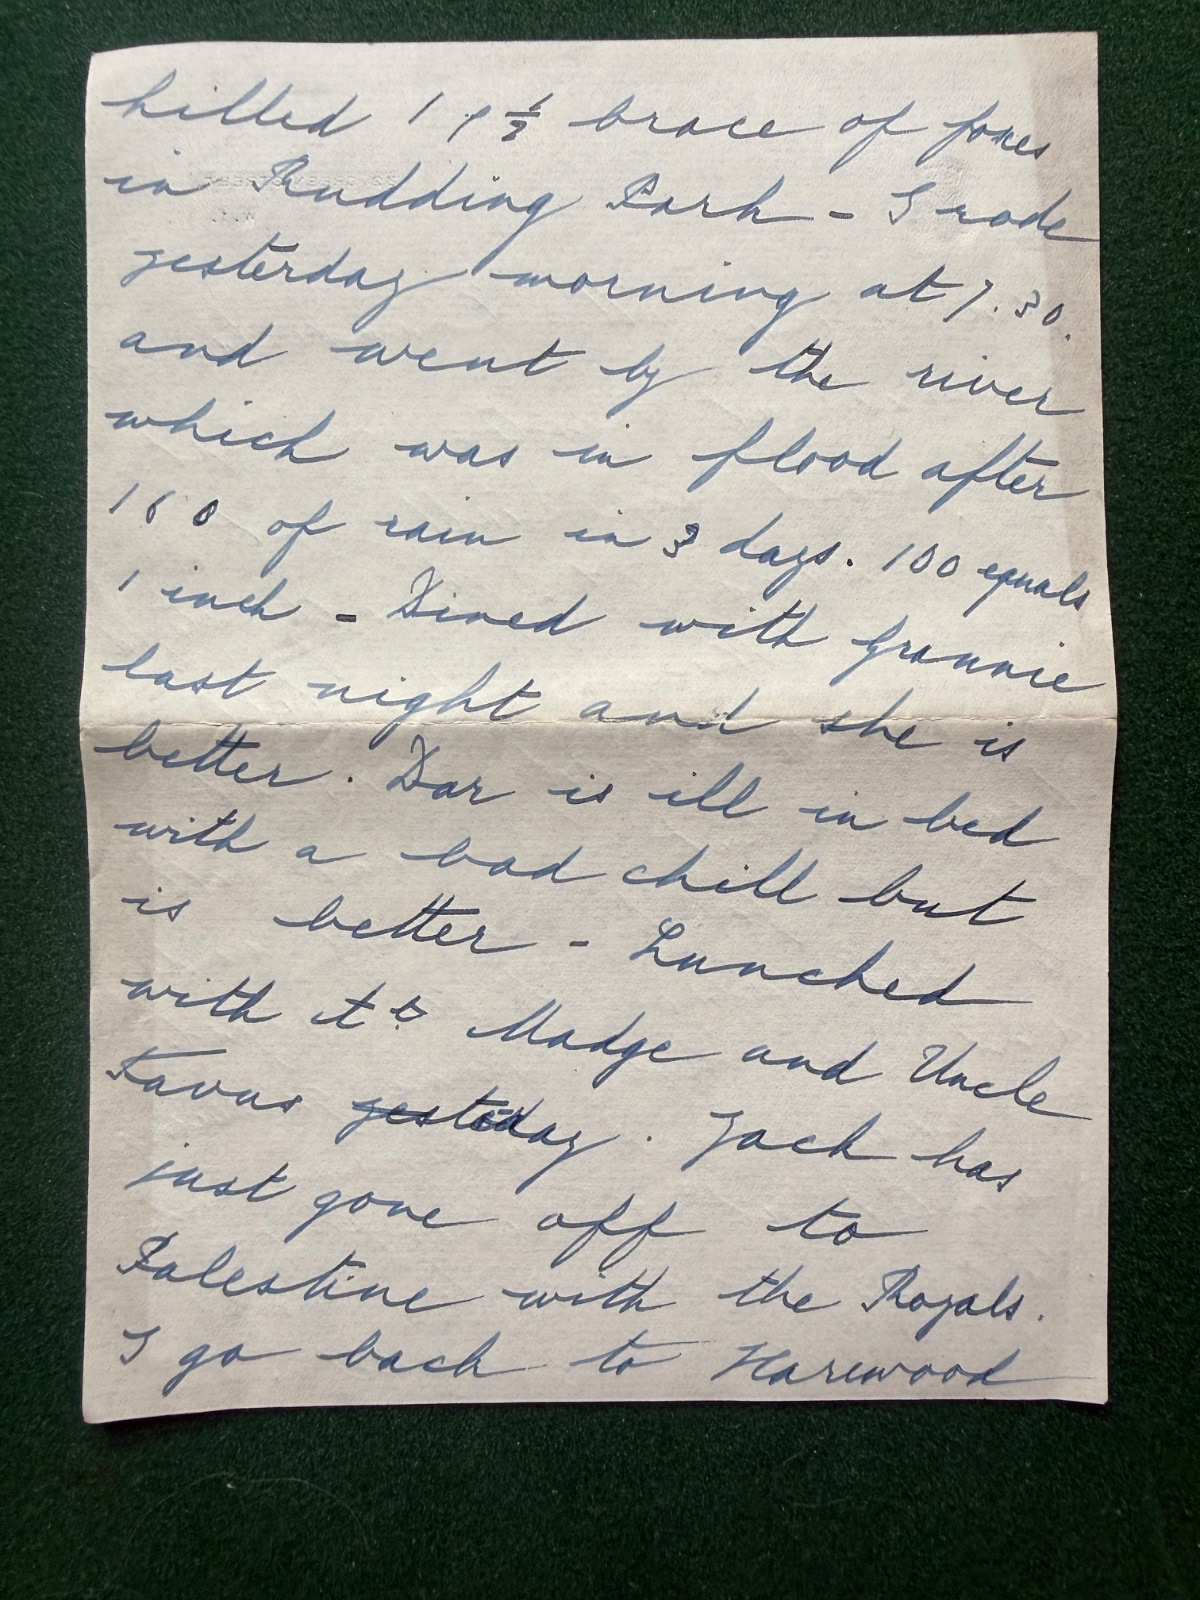 killed 1 & ½ brace of foxes
in Rudding Park - I rode
yesterday morning at 7.30.
and went by the river
which was in flood after
160 of rain in 3 days. 100 equals
1 inch - Dined with Grannie
last night and she is
better. Dar is ill in bed
with a bad chill but
is better - Lunched
with Madge and Uncle
yesterday. Jack has
just gone off to
Palestine with the Royals.
I go back to Harewood